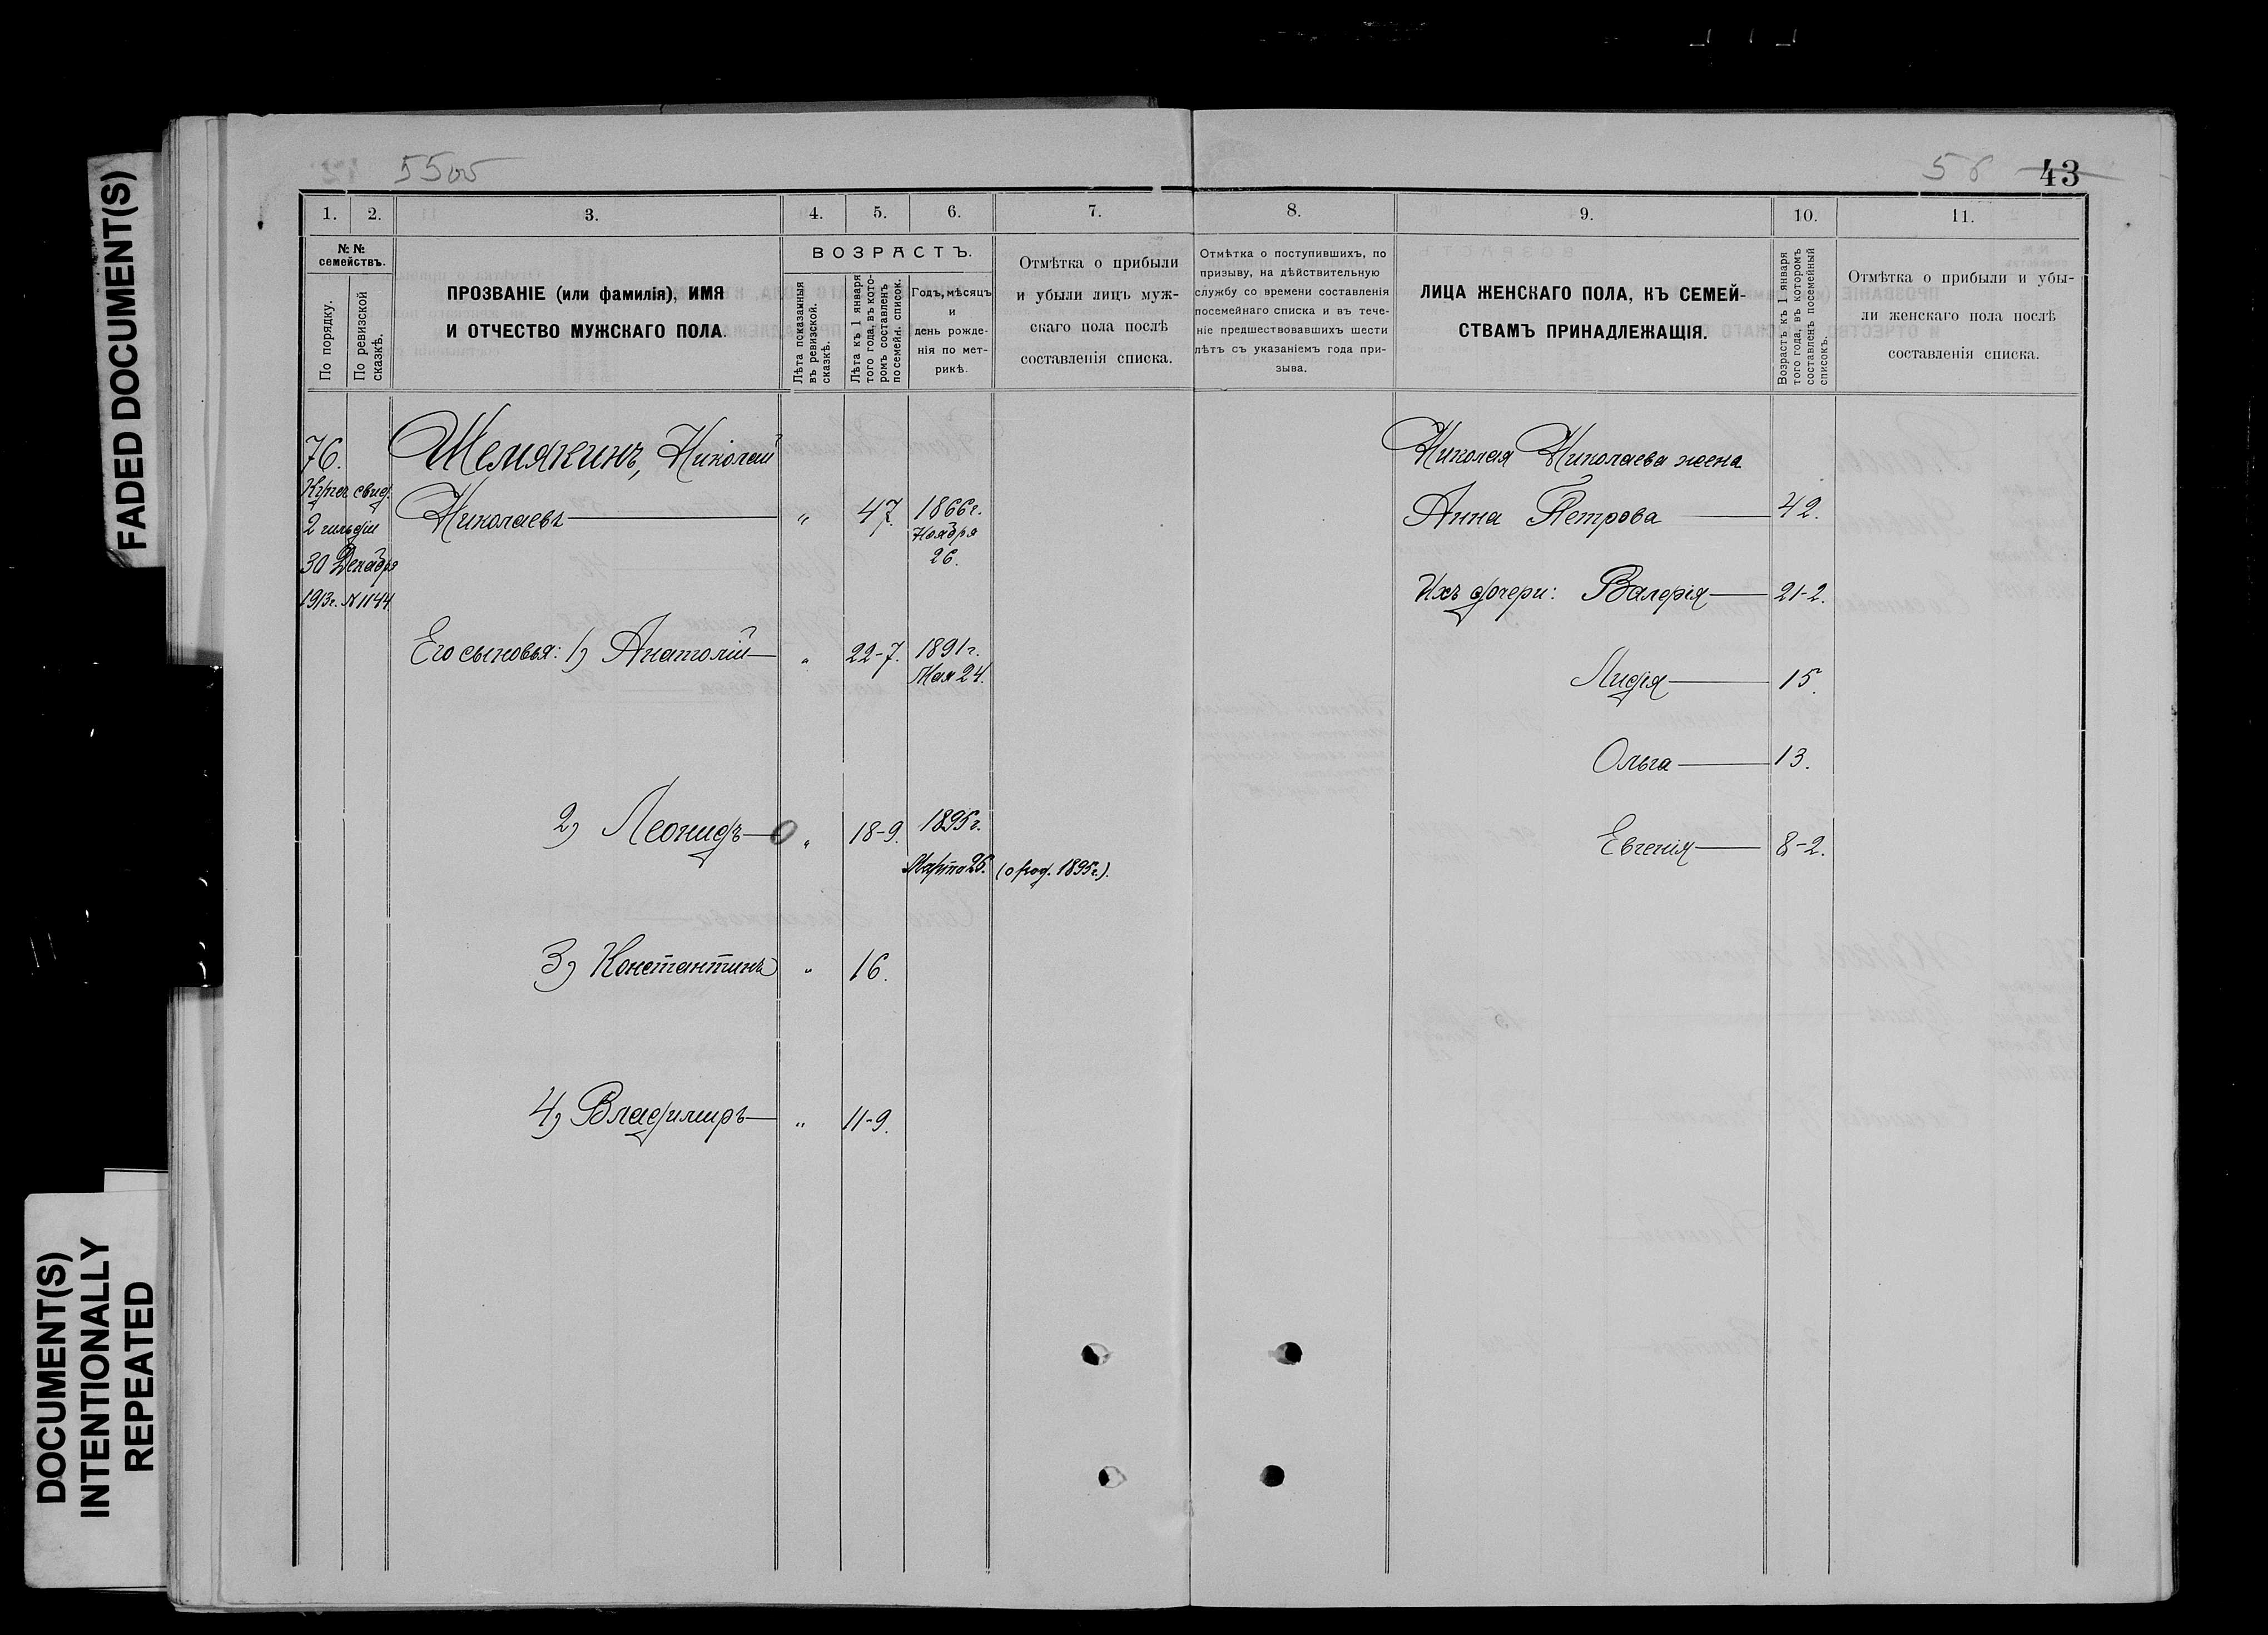 FADED DOCUMENT(S)
DOCUMENT(S)
INTENTIONALLY
REPEATED
55об
56 43
1. 2. 3. 4. 5. 6. 7. 8. 9. 10. 11.
№ №
семействъ.
По порядку.
По ревизской
сказкѣ.
ПРОЗВАНІЕ (или фамилія), ИМЯ
И ОТЧЕСТВО МУЖСКАГО ПОЛА.
ВОЗРАСТЪ.
Лѣта показанныя
въ ревизской.
сказкѣ.
Лѣта къ 1 января
того года, въ кото-
ромъ составленъ
посемейн. список.
Годъ, мѣсяцъ
и
день рожде-
нія по мет-
рикѣ.
Отмѣтка о прибыли
и убыли лицъ муж-
скаго пола послѣ
составленія списка.
Отмѣтка о поступившихъ, по
призыву, на дѣйствительную
службу со времени составленія
посемейнаго списка и въ тече-
ніе предшествовавшихъ шести
лѣтъ съ указаніемъ года при-
зыва.
ЛИЦА ЖЕНСКАГО ПОЛА, КЪ СЕМЕЙ-
СТВАМЪ ПРИНАДЛЕЖАЩІЯ.
Возрастъ къ 1 января
того года, въ которомъ
составленъ посемейный
списокъ.
Отмѣтка о прибыли и убы-
ли женскаго пола послѣ
составленія списка.
76.
Купеч. свид.
2 гильдіи
30 Декабря
1913г. №1144
Шемякинъ, Николай
Николаевъ " 47. 1866г.
Ноября
26.
Его сыновья: 1) Анатолій " 22-7. 1891г.
Мая 24.
2) Леонидъ " 18-9. 1895г.
Марта 26. (о род. 1895г.).
3) Константинъ " 16.
4) Владимиръ " 11-9.
Николая Николаева жена
Анна Петрова 42.
Ихъ дочери: Валерія 21-2.
Лидія 15.
Ольга 13.
Евгенія 8-2.